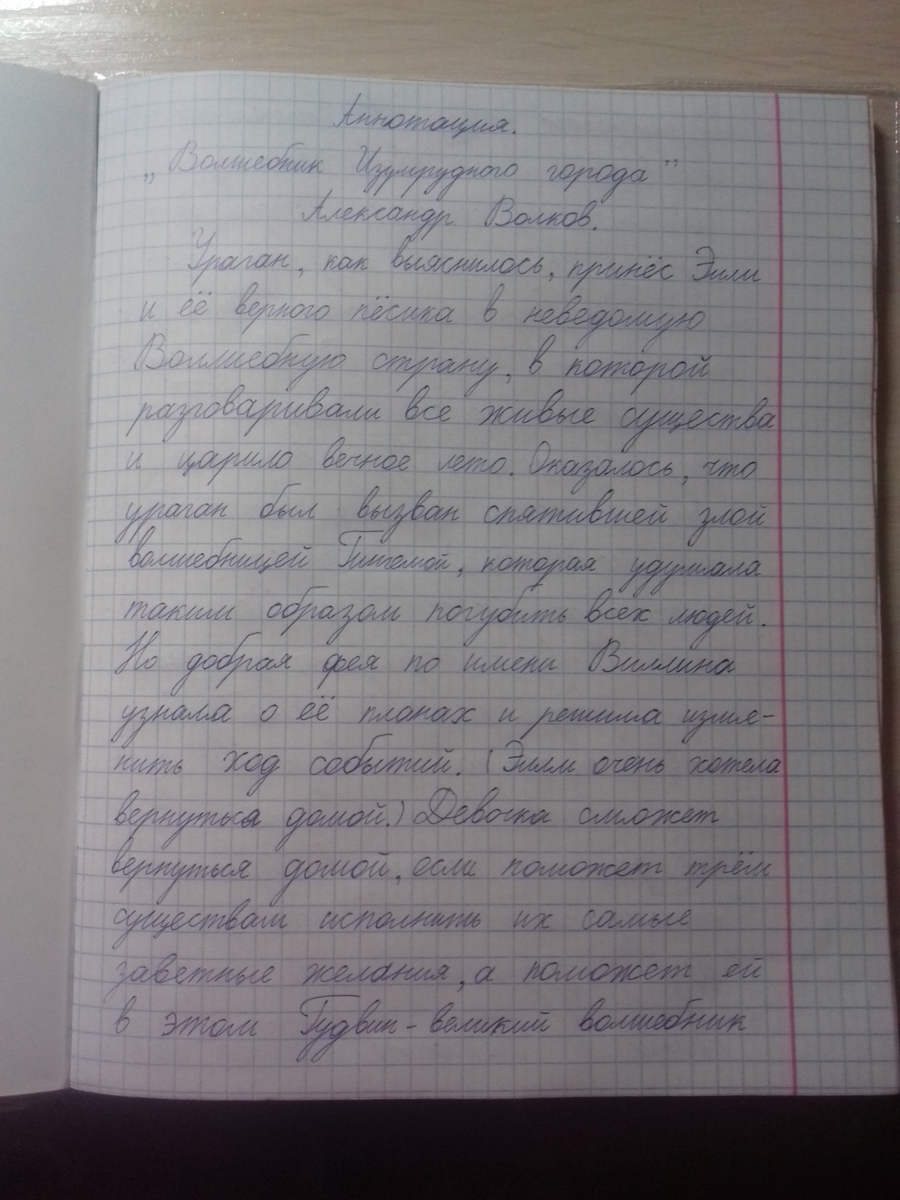 Аннотация.
„Волшебник Изумрудного города"
Александр Волков.
Ураган, как выяснилось, принёс Элли
и её верного пёсика в неведомую
Волшебную страну, в которой
разговаривали все живые существа
и царило вечное лето. Оказалось, что
ураган был вызван спятившей злой
волшебницей Гингемой, которая удумала
таким образом погубить всех людей.
Но добрая фея по имени Виллина
узнала о её планах и решила изме-
нить ход событий. (Элли очень хотела
вернуться домой.) Девочка сможет
вернуться домой, если поможет трём
существам исполнить их самые
заветные желания, а поможет ей
в этом Гудвин - великий волшебник